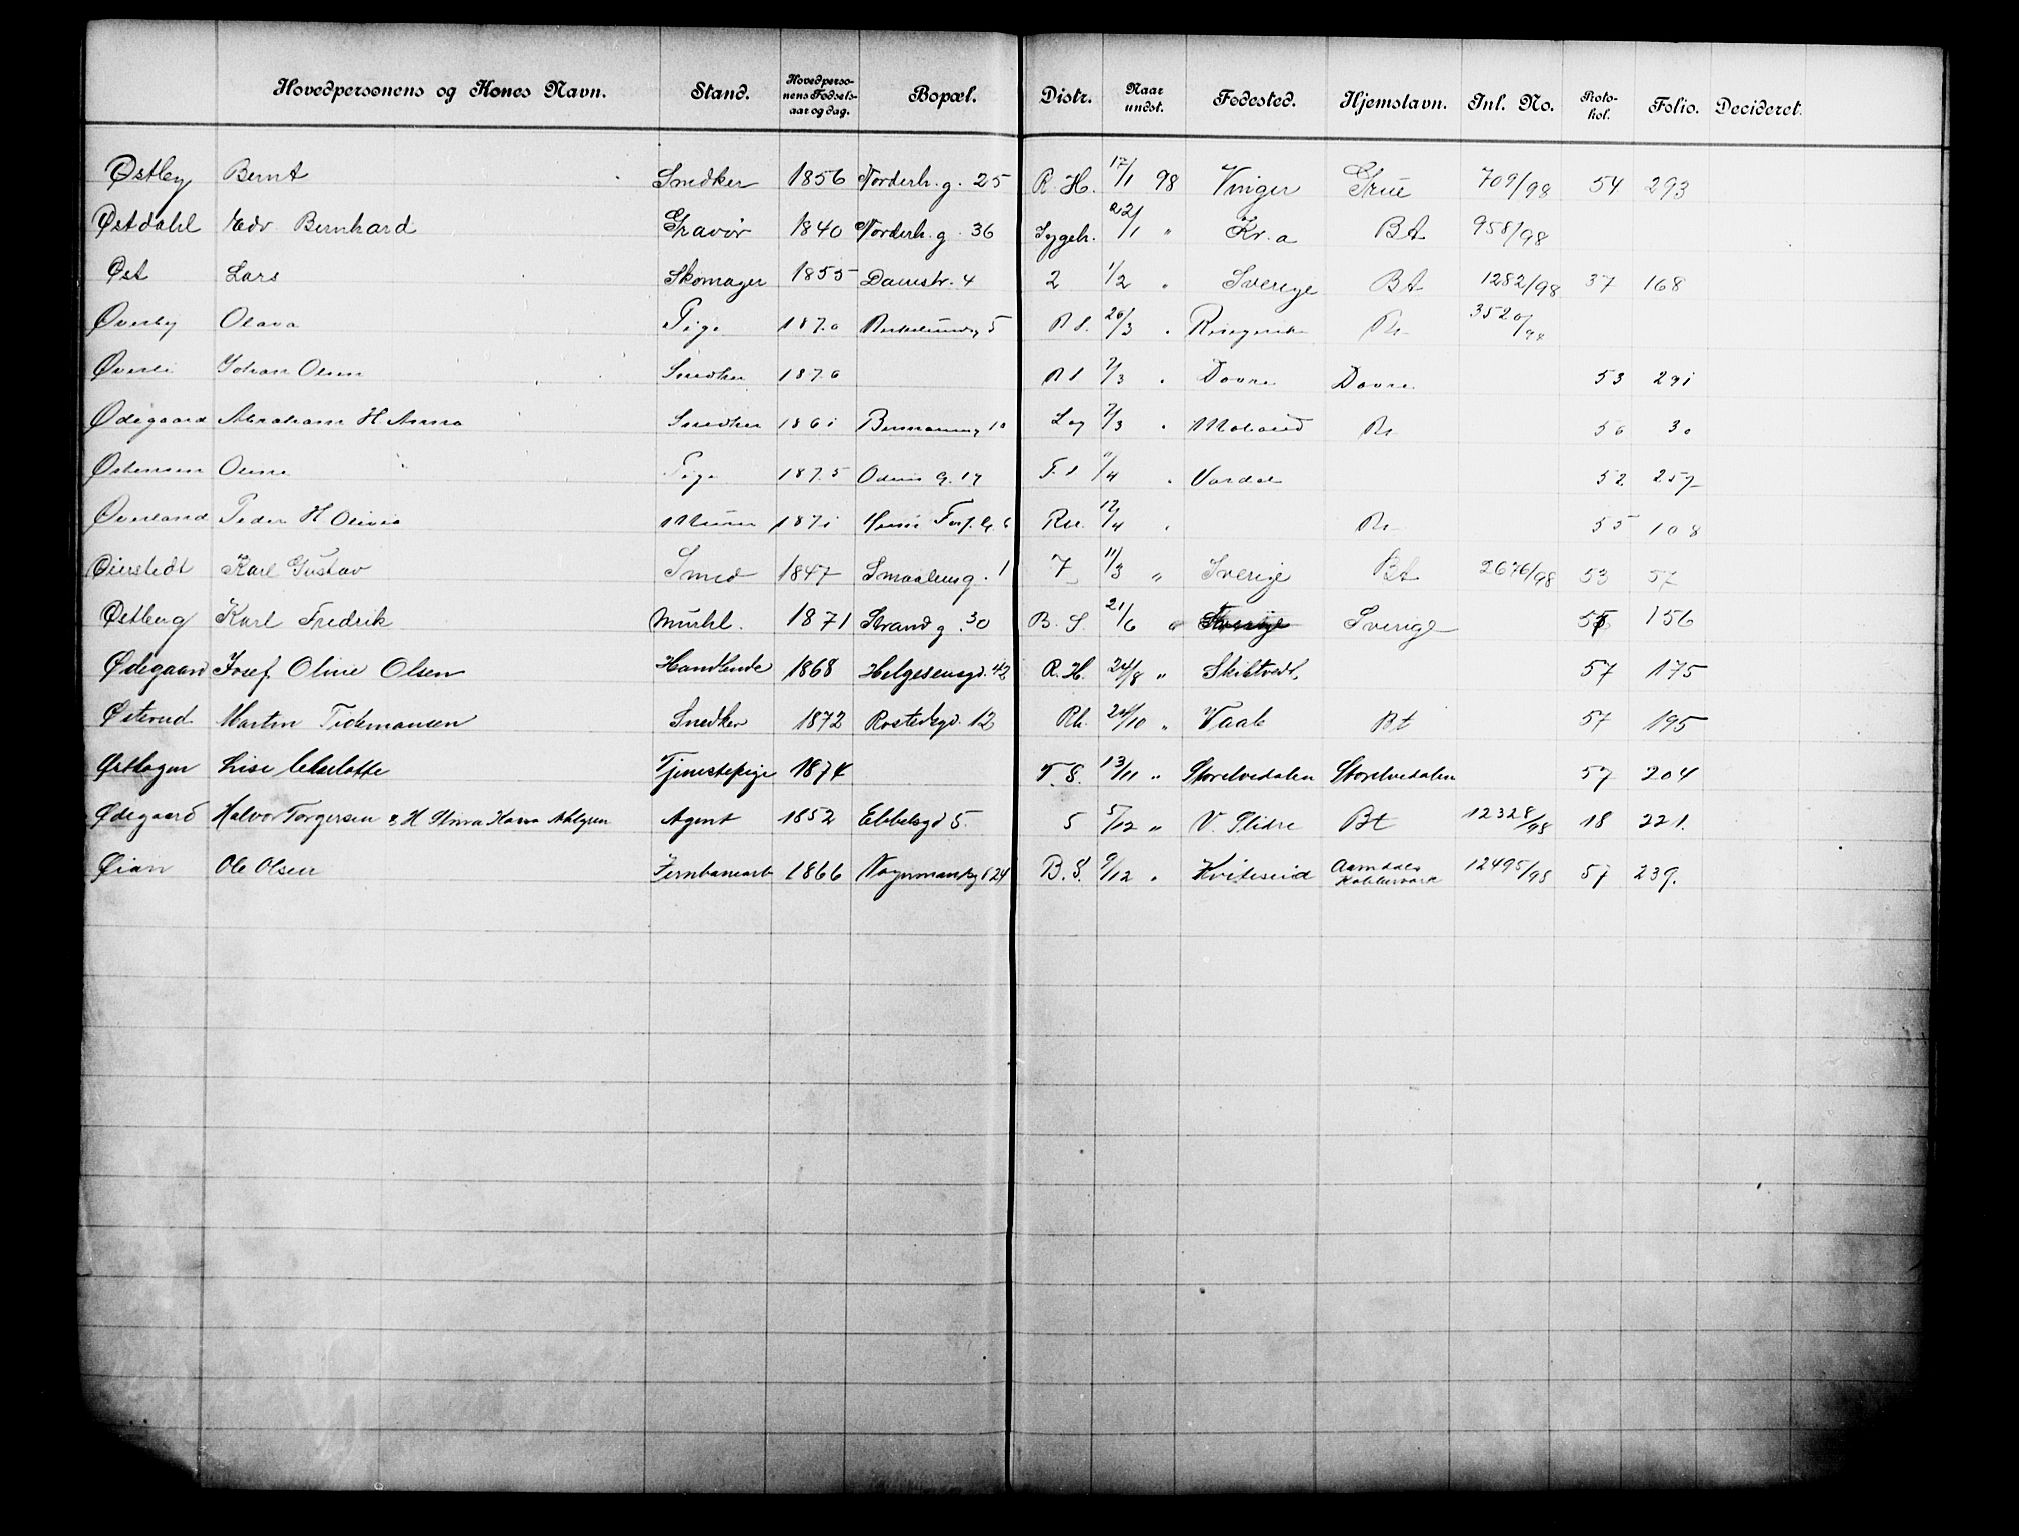 Hovedpersonens og Kones Navn. Stand. Hovedpersonens Fødselsaar og dag. Bopæl. Distr. Naar undst. Fødested. Hjemstavn. Inl. No. Protokol. Folio. Decideret.
Østby Bernt Snedker 1856 Norderh. g. 25 R. H. 17/1 98 Vinger Grue 709/98 54 293
Østdahl Edv Bernhard Gravør 1840 Norderh. g. 36 Sygeh. 22/1 " Kr.a Bt 958/98
Øst Lars Skomager 1855 Damstr. 4 2 1/2 " Sverige Bt 1282/98 37 168
Øverby Olava Pige 1870 5 26/3 "
Øverli Johan Olsen Snedker 1876 7/3 " Dovre Dovre 53 291
Ødegaard Abraham H Anna Snedker 1861 10 7/3 " 56 30
Østensen Oline Pige 1875 Odins G. 17 /4 " Vardal 52 257
Øverland Peder H Olivia Murer 1871 6 12/4 " 55 108
Øierstedt Karl Gustav Smed 1847 Smaaleng. 1 7 11/3 " Sverige Bt 2676/98 53 57
Østberg Karl Fredrik Murhl. 1871 Strand g. 30 B. S. 21/6 " Sverige Sverige 156
Ødegaard Josef Oline Olsen Handlende 1868 Helgesensgd. 42 R. H. 24/8 " Skibtvedt. 57 175
Østerud Martin Tidemansen Snedker 1872 Rostedsgd. 12 Rh. 24/10 " Vaale Bt 57 195
Østhagen Lise Tjenestepige 1874 T. S. 13/11 " Storelvedalen Storelvedalen 57 204
Ødegaard Halvor Torgersen & H Ahlgren Agent 1852 Ebbelsgd 5. 5 5/12 " V. Slidre Bt 12328/98 18 221.
Øian Ole Olsen Jernbanearb 1866 B. S. 9/12 " Kviteseid Aamdals Kobberværk 12495/98 57 239.